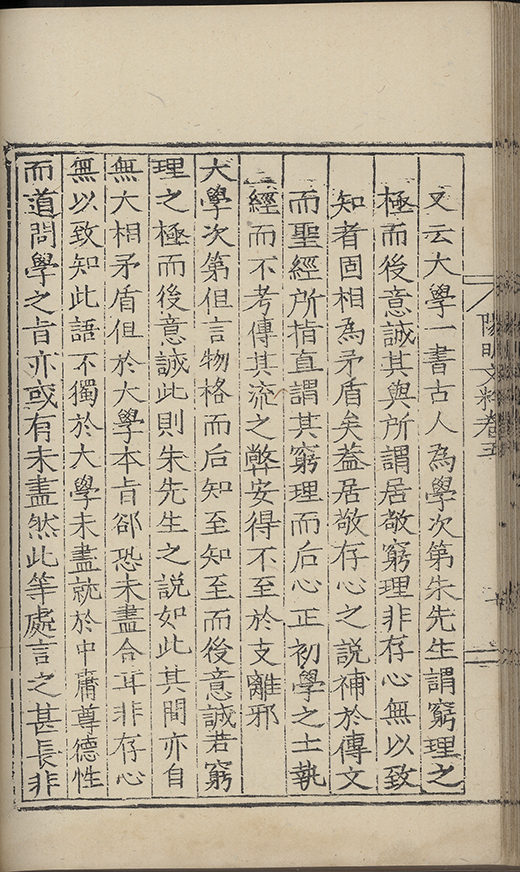 陽明文粹卷五
又云大學一書古人為學次第朱先生謂窮理之
極而後意誠其與所謂居敬窮理非存心無以致
知者固相為矛盾矣葢居敬存心之說補於傳文
而聖經所指直謂其窮理而后心正初學之士執
經而不考傳其流之弊安得不至於支離邪
大學次第但言物格而后知至知至而後意誠若窮
理之極而後意誠此則朱先生之說如此其間亦自
無大相矛盾但於大學本旨卻恐未盡合耳非存心
無以致知此語不獨於大學未盡就於中庸尊德性
而道問學之旨亦或有未盡然此等處言之甚長非